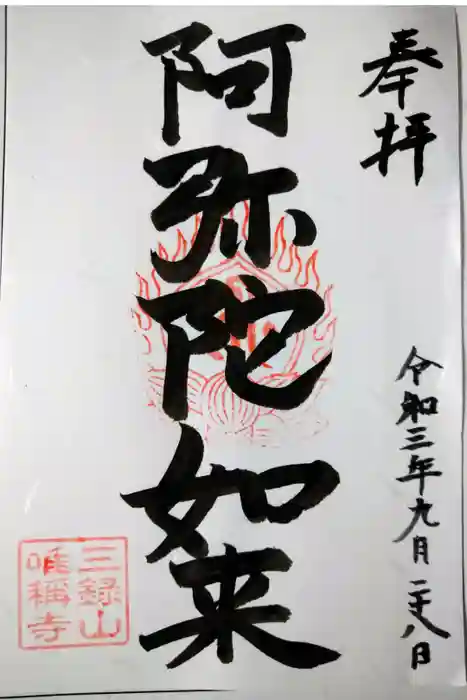 奉拝
令和三年九月二十八日
阿弥陀如来
三録山
唯稱寺